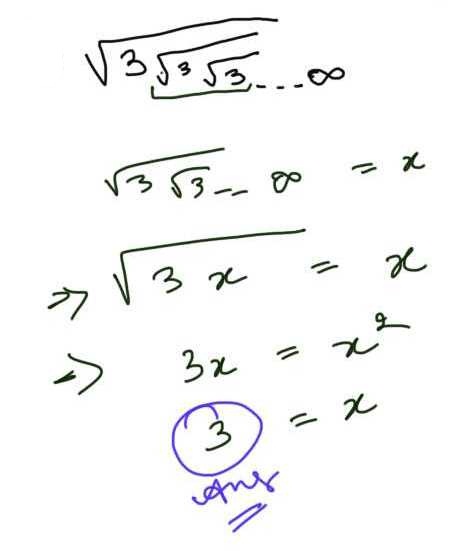 √3√3√3 .... ∞
√3√3 -- ∞ = x
⇒ √3x = x
⇒ 3x = x²
3 = x
Ans